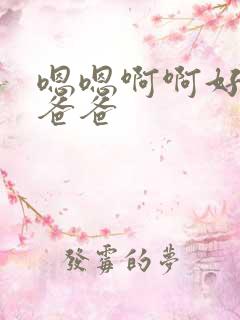 嗯嗯啊啊好
爸爸
發霉的夢